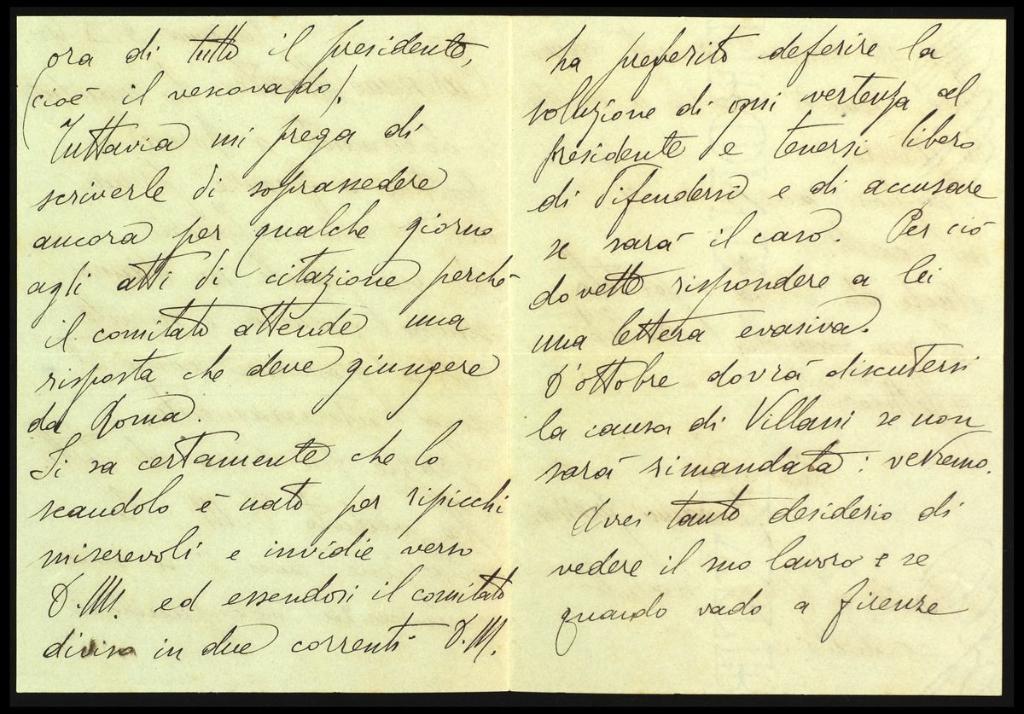 ora di tutto il presidente,
(cioè il vescovado).
Tuttavia mi prega di
scriverle di soprassedere
ancora per qualche giorno
agli atti di citazione perché
il comitato attende una
risposta che deve giungere
da Roma.
Si sa certamente che lo
scandolo è nato per ripicchi
miserevoli e invidie verso
D.M. ed essendosi il comitato
diviso in due correnti D.M.
ha preferito deferire la
soluzione di ogni vertenza al
presidente e tenersi libero
di difendersi e di accusare
se sarà il caso. Per ciò
dovette rispondere a lei
una lettera evasiva.
D'ottobre dovrà discutersi
la causa di Villani se non
sarà rimandata: vedremo.
Avrei tanto desiderio di
vedere il suo lavoro e se
quando vado a Firenze